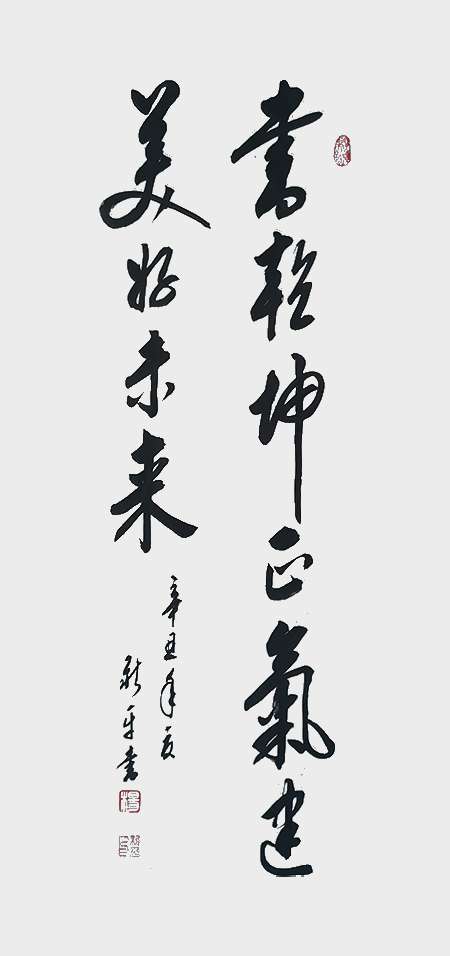 書乾坤正氣建
美好未来
辛丑年夏
新平書